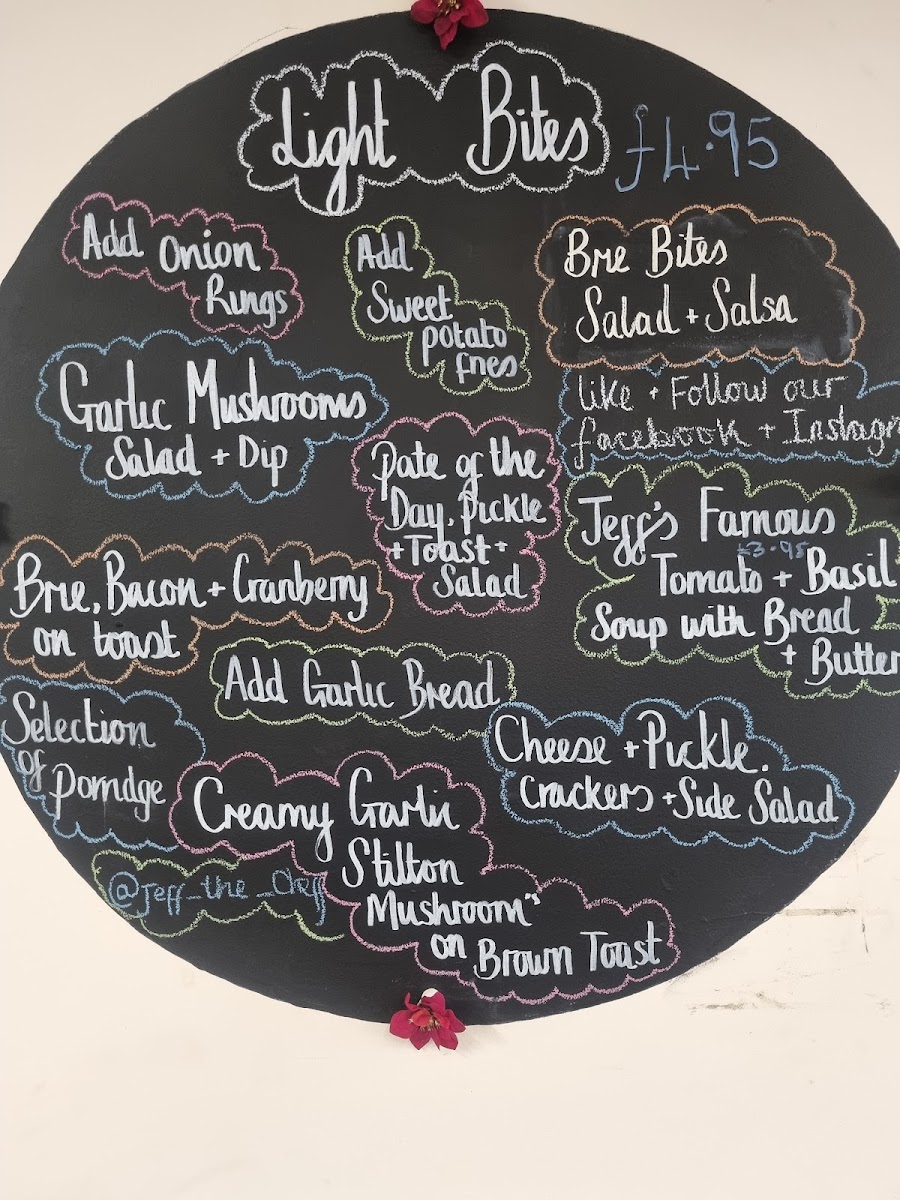 Light Bites £4.95
Add Onion
Rings
Add
Sweet
potato
fries
Brie Bites
Salad + Salsa
Garlic Mushrooms
Salad + Dip
like + Follow our
facebook + Instagr
Pate of the
Day, Pickle
+ Toast +
Salad
Jeff's Famous
£3.95
Tomato + Basil
Soup with Bread
+ Butter
Brie, Bacon + Cranberry
on toast
Add Garlic Bread
Selection
of
Porridge
Cheese + Pickle.
Crackers + Side Salad
Creamy Garlic
Stilton
Mushroom"
on Brown Toast
@Jeff_the_Cheff